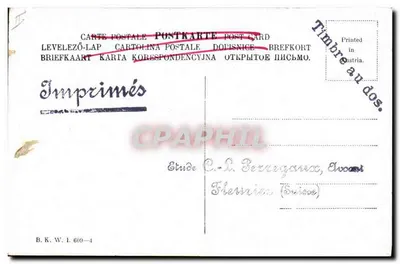 CARTE POSTALE POSTKARTE POST CARD
LEVELEZŐ-LAP CARTOLINA POSTALE DOPISNICE BREFKORT
BRIEFKAART KARTA KORESPONDENCYJNA ОТКРЫТОЕ ПИСЬМО.
Printed
in
Austria.
Timbre au dos.
Imprimés
CPARAMA
Etude C.-L. Perregaux, Avocat
Fleurier (Suisse)
B. K. W. I. 600-4